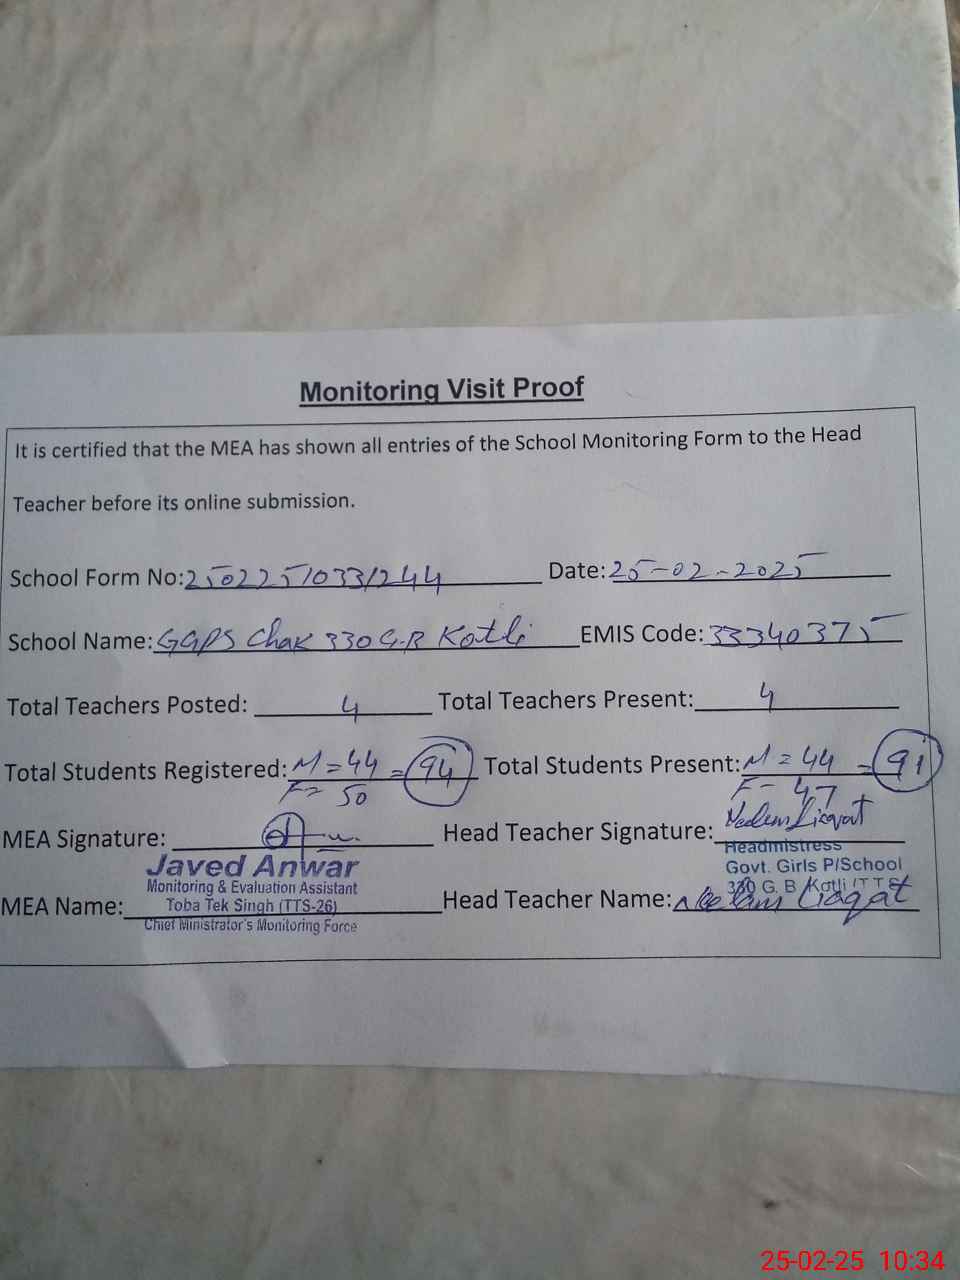 Monitoring Visit Proof
It is certified that the MEA has shown all entries of the School Monitoring Form to the Head
Teacher before its online submission.
School Form No: 25022510331244 Date: 25-02-2025
School Name: GGPS Chak 330 G.B Kotli EMIS Code: 33340375
Total Teachers Posted: 4 Total Teachers Present: 4
Total Students Registered: M = 44 = 94 Total Students Present: M = 44 = 91
F = 50 F - 47
MEA Signature: Head Teacher Signature: Neelum Liaqat
Javed Anwar
Monitoring & Evaluation Assistant
Toba Tek Singh (TTS-26)
Chief Ministrator's Monitoring Force
Headmistress
Govt. Girls P/School
330 G. B Kotli (T T S)
MEA Name: Head Teacher Name: Neelam Liaqat
25-02-25 10:34